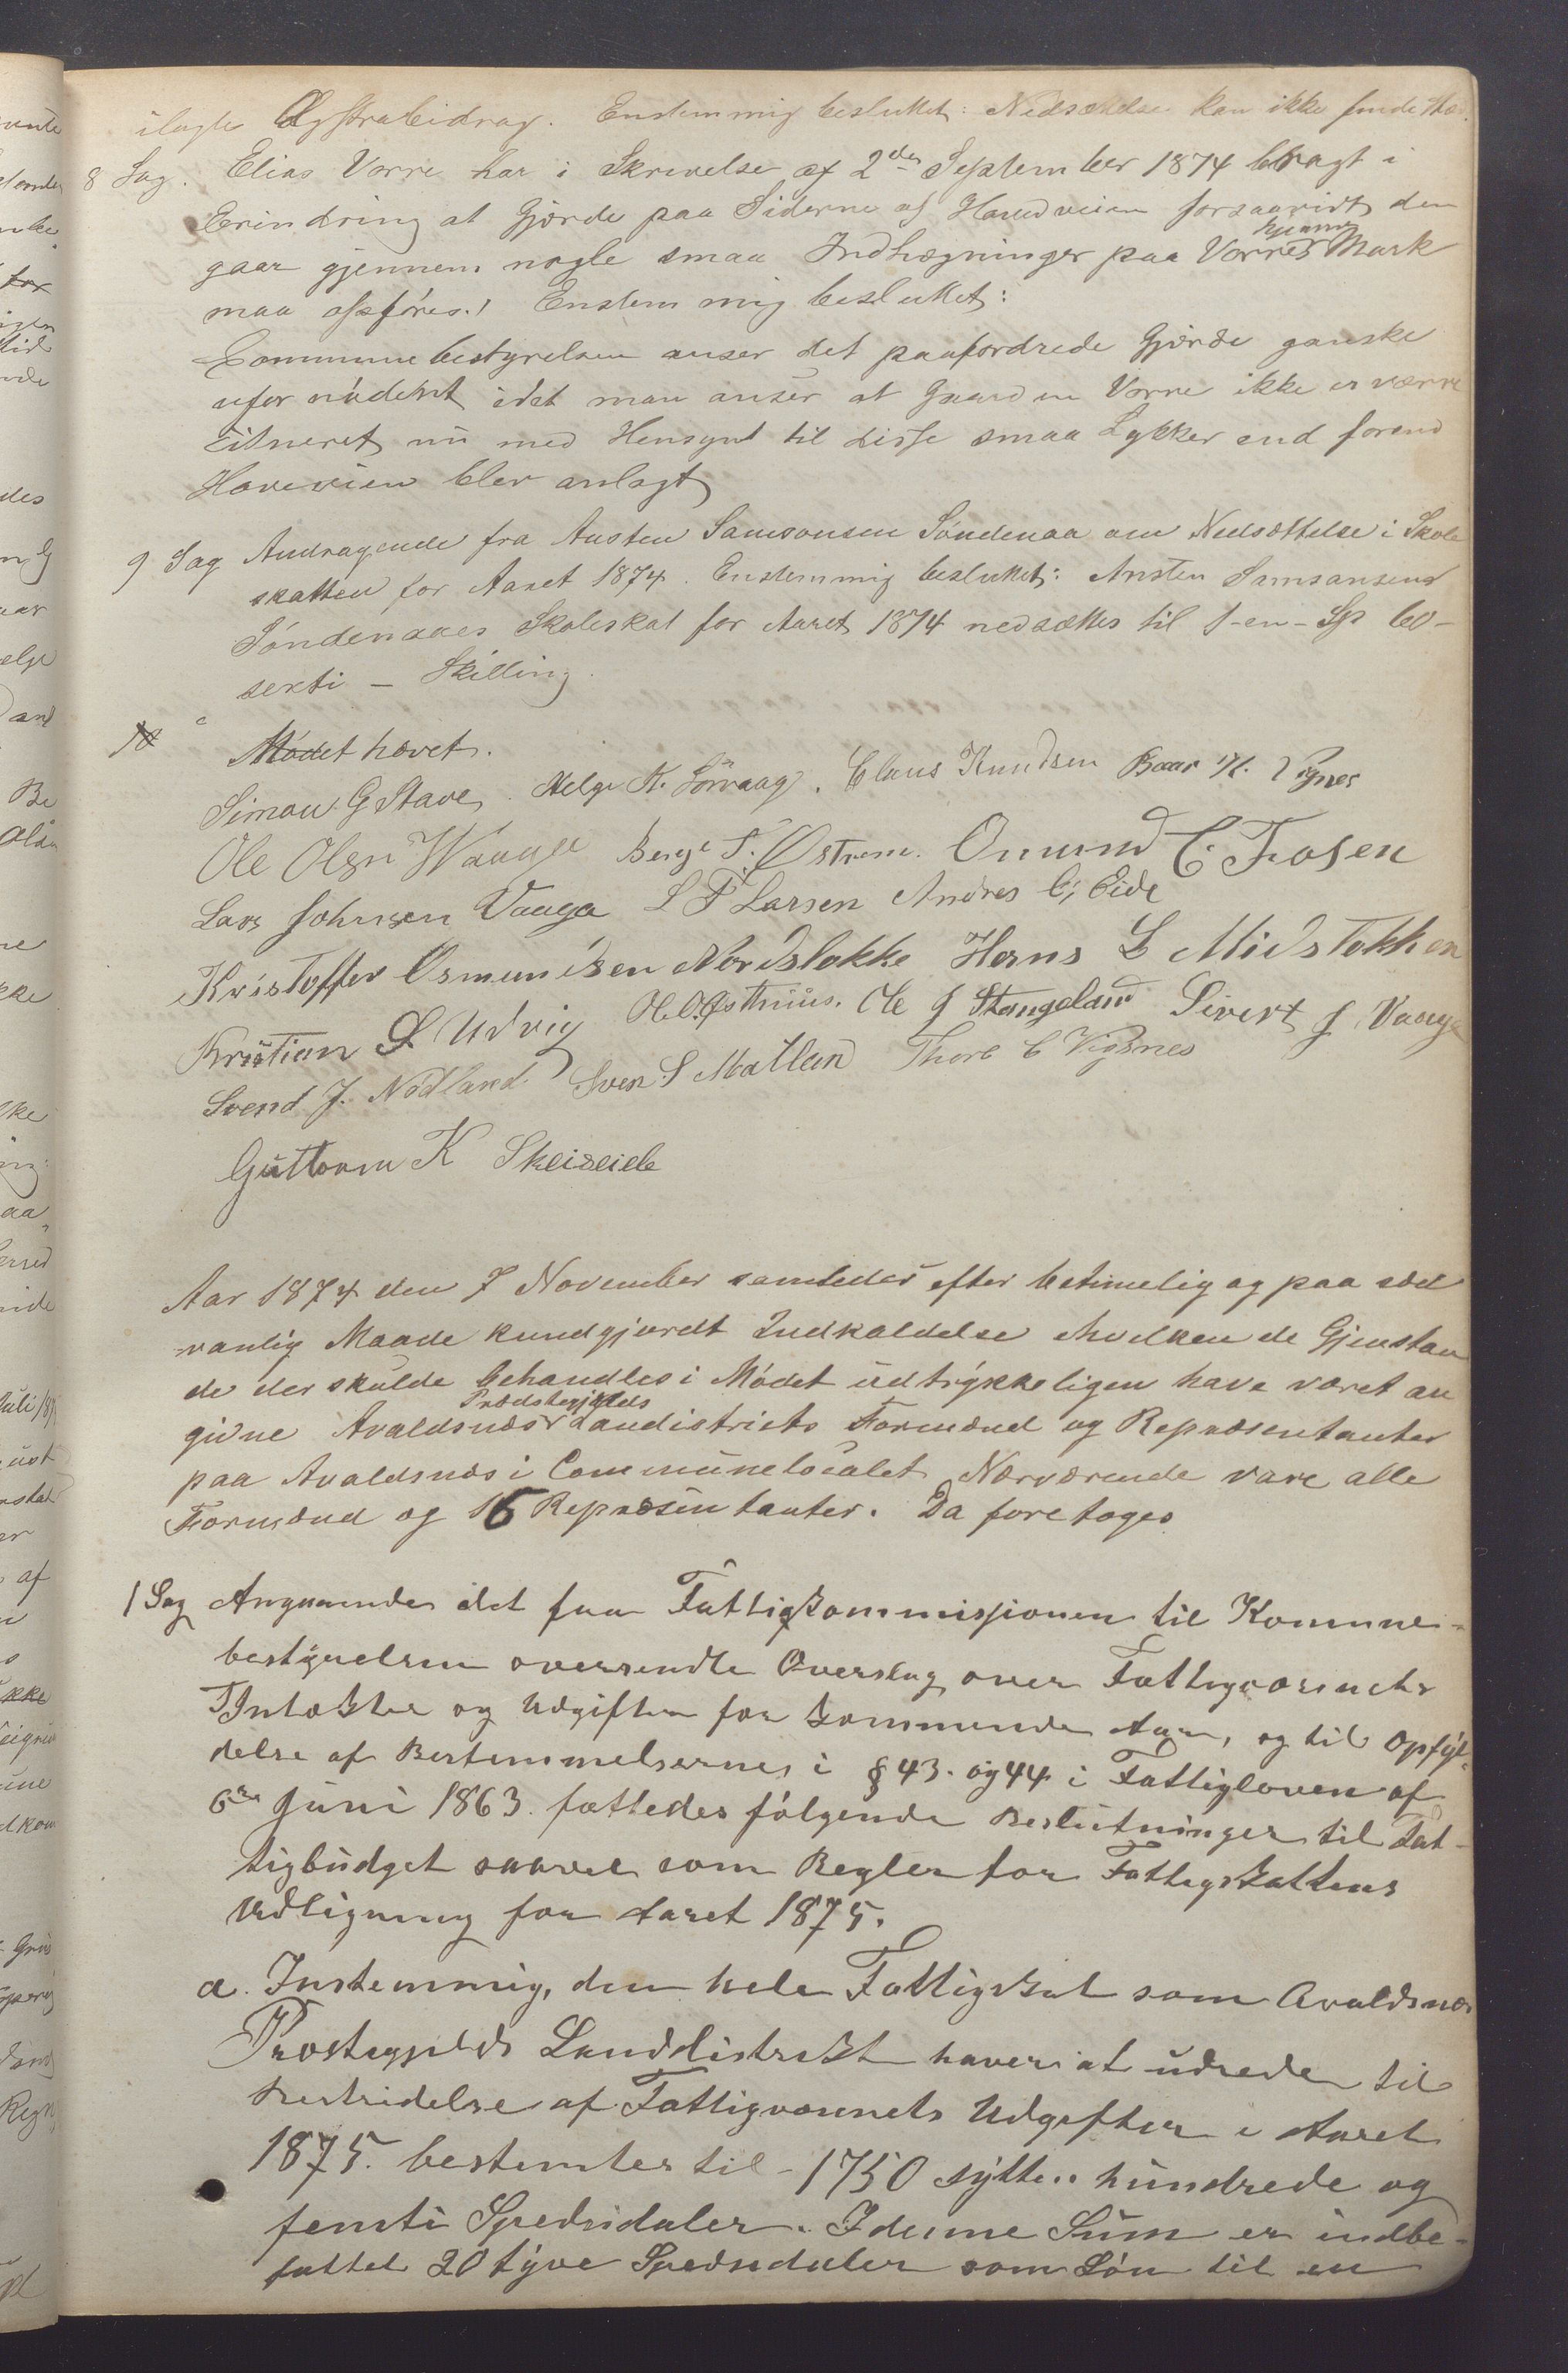 ilagte Ægstrabidrag. Enstemmig besluttet: Nedsættelse kan ikke finde Sted.
8 Sag. Elias Vorre har i Skrivelse af 2den September 1874 bragt i
Erindring at Gjærde paa Siderne af Hovedveien forsaavidt den
gaar gjennem nogle smaa Indhægninger paa Vorres hjemme Mark
maa opføres. Enstemmig besluttet:
Communebestyrelsen anser det paafordrede Gjærde ganske
ufornødent idet man anser at Gaarden Vorre ikke er værre
situeret nu med Hensynt til disse smaa Lykker end forend
Hoveveien blev anlagt
9 Sag Andragende fra Austen Samsonsen Søndenaa om Nedsættelse i Skole
skatten for Aaret 1874. Enstemmig besluttet: Austen Samsonsens
Søndenaaes Skoleskat for Aaret 1874 nedsættes til 1-en- Sp 60-
sexti - Skilling.
10
Mødet hævet.
Simon G Stave. Helge K. Sørvaag. Claus Knudsen Baar K. Vignes
Ole Olsen Waage Berge S. Østrem. Omund C. Frosen
Lars Johnsen Vaaga L F Larsen Andres C, Eide
Kristoffer Osmundsen Nordstokke Hans L Midstokken
Kristian S. Udvig O. O. Østhuus. Ole J Stangeland Sivert J. Vaage
Svend J. Nodland. Sven S Matland Thore C Vignes
Guttorm K Skeiseide
Aar 1874 den 7 November samledes efter betimelig og paa sæd
vanlig Maade kundgjordt Indkaldelse hvilken de Gjenstan
de der skulde behandles i Mødet udtrykkeligen have været an
givne Avaldsnæs Præstegjælds Landistricts Formænd og Repræsentanter
paa Avaldsnæs i Communelocalet Nærværende vare alle
Formænd og 16 Repræsentanter. Da foretoges
1 Sag Angaaende det fra Fattigkommissionen til Kommune-
bestyrelsen oversendte Overslag over Fattigvæsenets
Intækter og Udgifter for kommende Aar, og til Opfyl-
delse af Bestemmelsernes i § 43. og 44 i Fattigloven af
6te Juni 1863. fattedes følgende Beslutninger til Fat-
tigbudget saavel som Regler for Fattigskattens
Udligning for Aaret 1875.
a. Instemmig, den hele Fattigskat som Avaldsnæs
Præstegjelds Landdistrikt haver at udrede til
Bestridelse af Fattigvæsenets Udgifter i Aaret
1875. bestemtes til - 1750 sytten hundrede og
femti Speciedaler. I denne Sum er indbe-
fattet 20 tyve Speciedaler som Løn til en